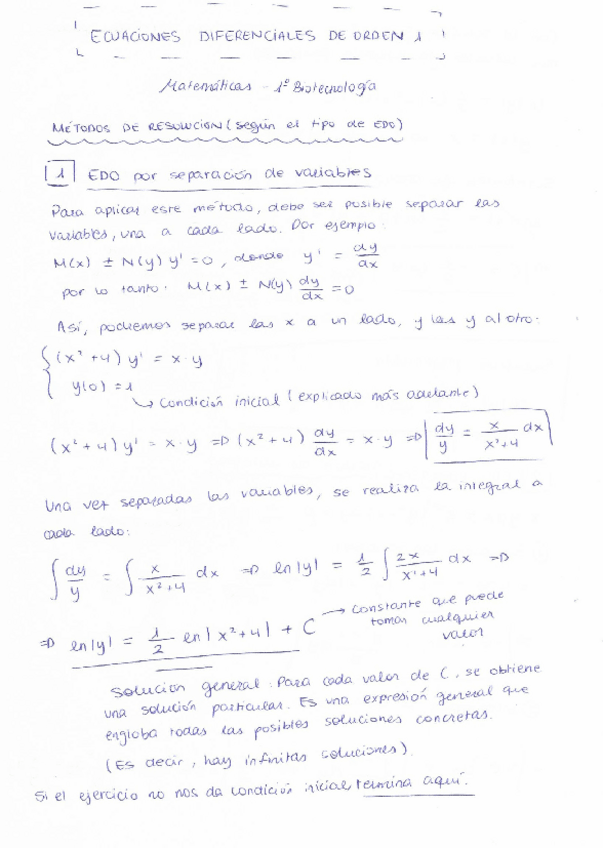 ECUACIONES DIFERENCIALES DE ORDEN 1
Matemáticas - 1º Biotecnología
MÉTODOS DE RESOLUCIÓN (según el tipo de EDO)
1 EDO por separación de variables
Para aplicar este método, debe ser posible separar las
variables, una a cada lado. Por ejemplo:
M(x) ± N(y) y' = 0, donde y' = dy/dx
por lo tanto: M(x) ± N(y) dy/dx = 0
Así, podremos separar las x a un lado, y las y al otro:
{ (x² + 4) y' = x · y
y(0) = 1
↳ Condición inicial (explicado más adelante)
(x² + 4) y' = x · y ⇒ (x² + 4) dy/dx = x · y ⇒ dy/y = x/(x²+4) dx
Una vez separadas las variables, se realiza la integral a
cada lado:
∫ dy/y = ∫ x/(x²+4) dx ⇒ ln|y| = 1/2 ∫ 2x/(x²+4) dx ⇒
⇒ ln|y| = 1/2 ln|x²+4| + C → Constante que puede
tomar cualquier
valor
Solución general. Para cada valor de C, se obtiene
una solución particular. Es una expresión general que
engloba todas las posibles soluciones concretas.
(Es decir, hay infinitas soluciones).
Si el ejercicio no nos da condición inicial termina aquí.